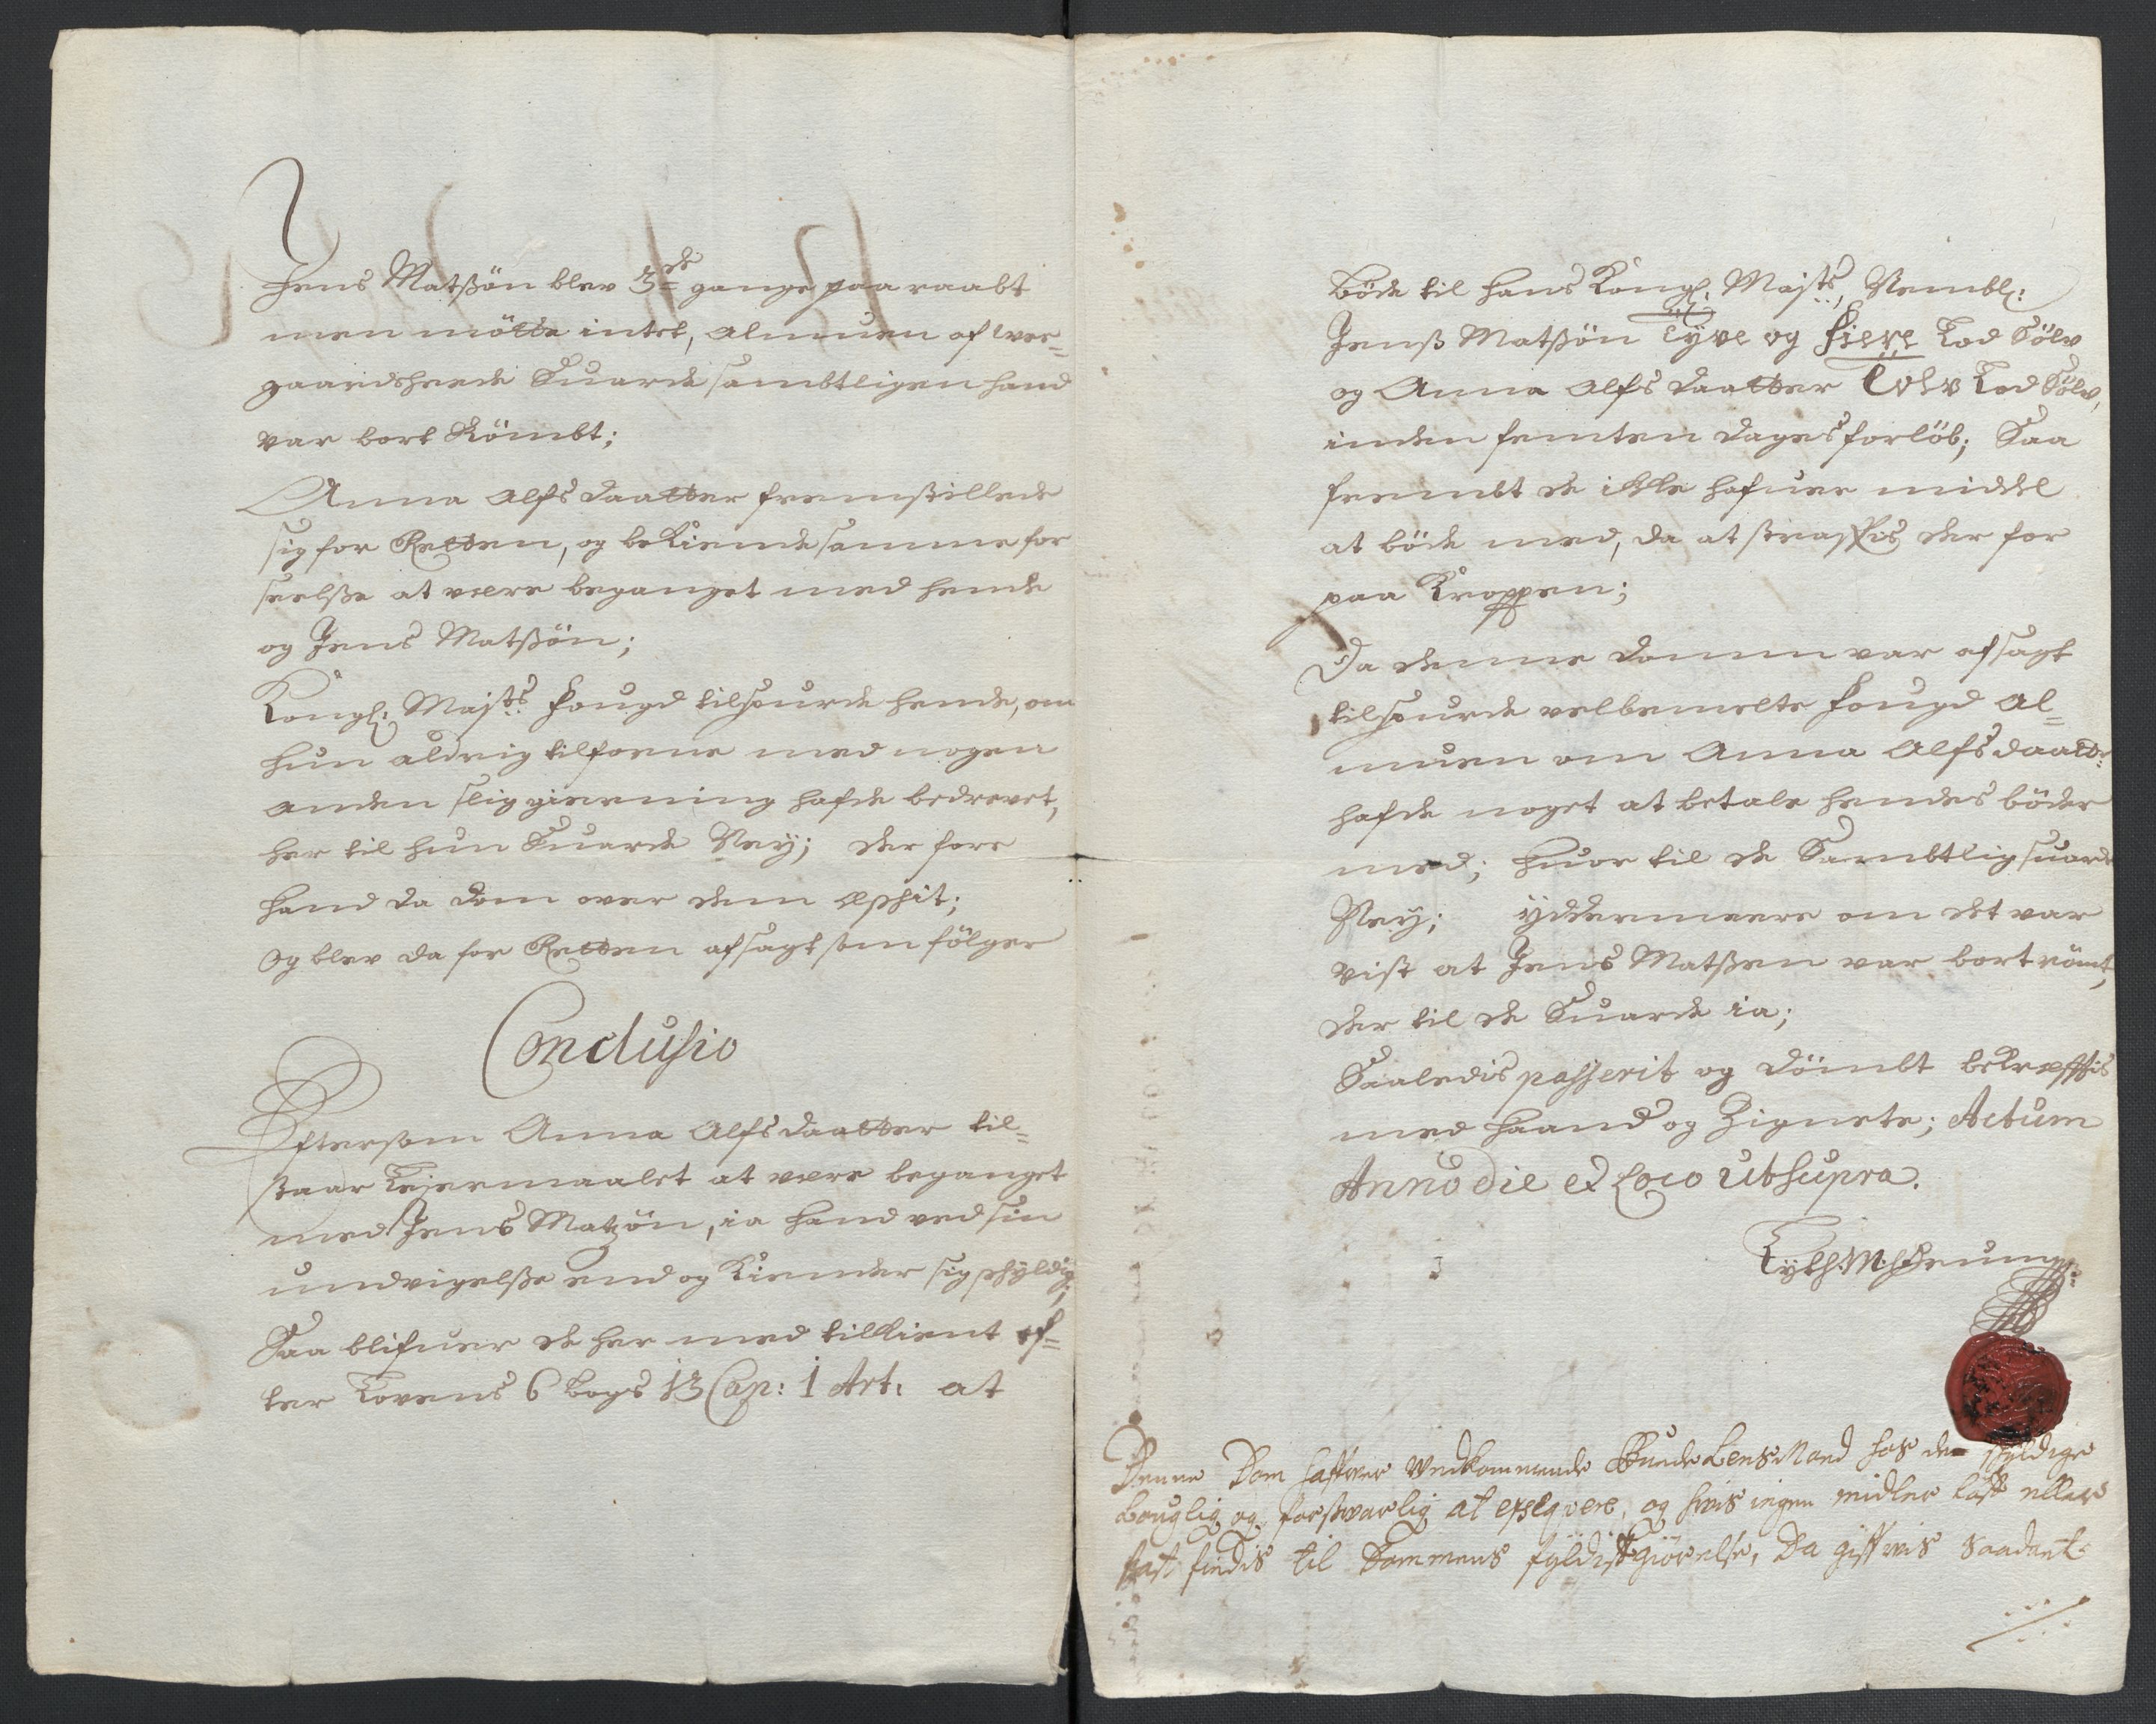 Jens Matsøn blev 3de gange paa raabt
men mötte intet, almuen af wer=
gaardsherde Suarde sambtligen hand
var bort Römbt;
Anna Alfs daatter fremstillede
sig for Retten, og bekiende samme for
seelsse at være beganget med hende
og Jens Matßön;
Kongl: Majts: fougd tilspurde hende, om
hun aldrig tilforne med nogen
anden slig gierning hafde bedrevet,
her til hun Suarde Ney; der fore
hand da dom over dem Æschit;
Og blev da for Retten afsagt som fölger
Conclusio
Eftersom Anna Alfsdaatter til=
staar Leiermaalet at være beganget
med Jens Matzön, ia hand ved sin
undvigelsse end og Kiender sig schyldig;
Saa blifuer de her med tilkient ef=
ter Lovens 6 bogs 13 Cap: 1 Art: at
böde til hans Kongl. Majts, Nembl:
Jenß Matßön Tyve og fiere Lod Sölv
og Anna Alfs daatter Tolv Lod Sölv,
inden femten dages forlöb; Saa
frembt de ikke hafuer middel
at böde med, da at straffis der for
paa Kroppen;
Da denne domm var afsagt
tilspurde velbemelte fougd Al=
muen om Anna Alfsdaatr:
hafde noget at betale hendes böder
med; huor til de Sambtlig suarde
Ney; ydermeere om det var
vist at Jens Matßen var bortrömt,
der til de Suarde ia;
Saaledis passerit og dömbt bekræfftis
med haand og Zignete; Actum
Anno die et loco utsupra.
Denne Dom haffver Wedkommende Bunde LensMand hos de skyldige
Louglig og forsvarlig at exseqvere, og hvis ingen midler löst eller
fast findis til Dommens fyldistgiörelse, Da giffvis Saadant